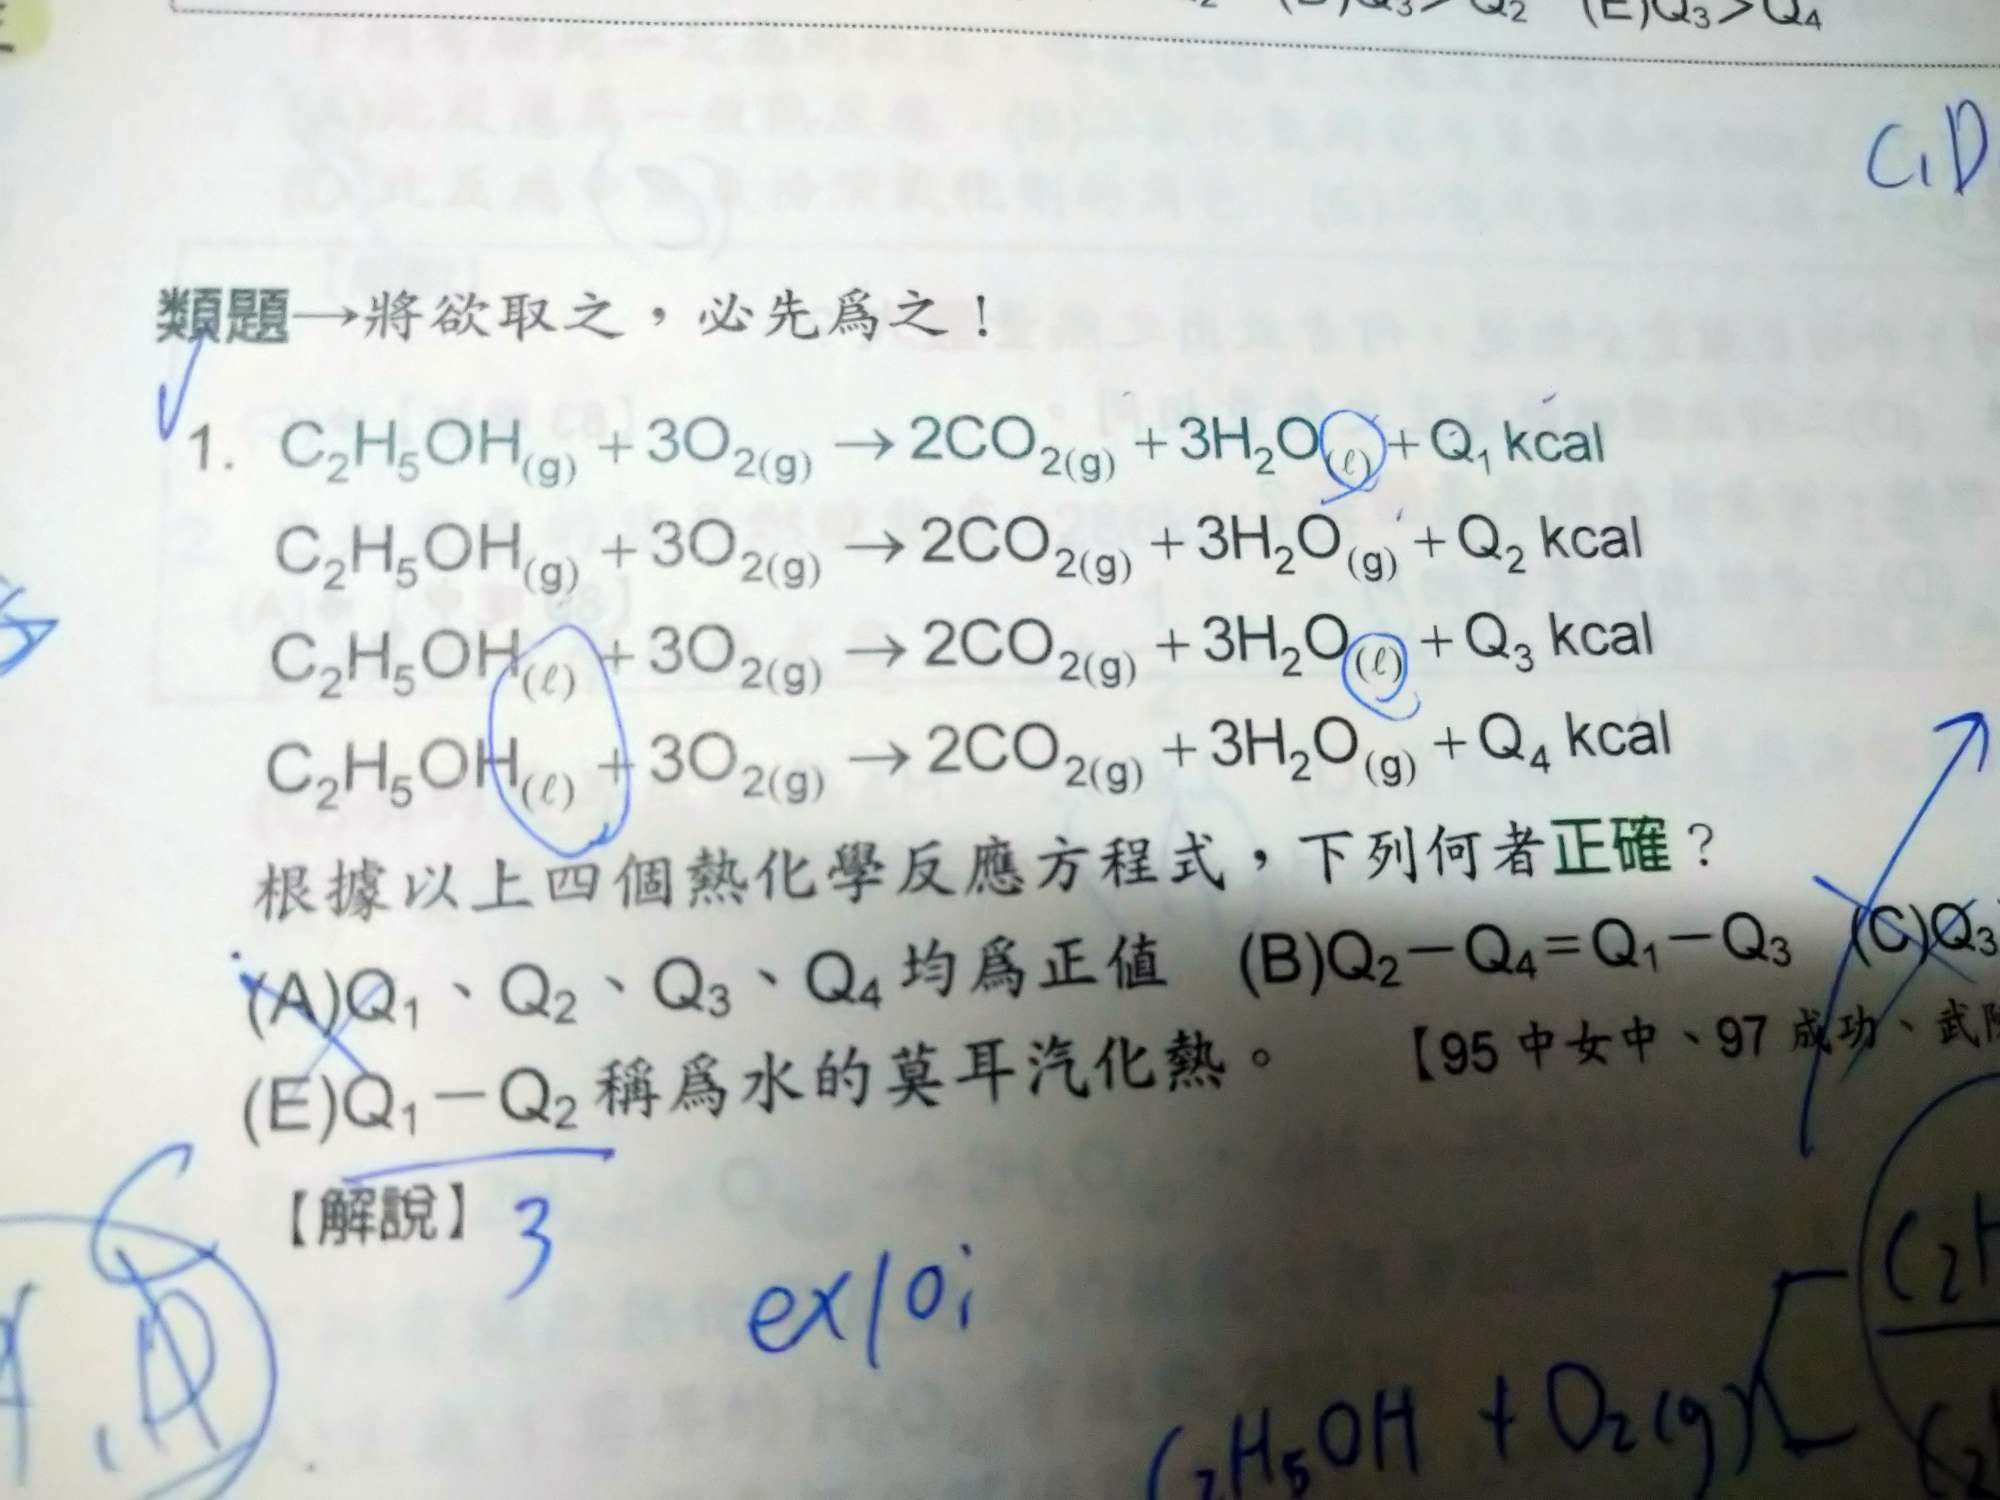 Q₃>Q₂ (E)Q₃>Q₄
C,D
類題→將欲取之，必先爲之！
1. C₂H₅OH(g)+3O₂(g)→2CO₂(g)+3H₂O(ℓ)+Q₁ kcal
C₂H₅OH(g)+3O₂(g)→2CO₂(g)+3H₂O(g)+Q₂ kcal
C₂H₅OH(ℓ)+3O₂(g)→2CO₂(g)+3H₂O(ℓ)+Q₃ kcal
C₂H₅OH(ℓ)+3O₂(g)→2CO₂(g)+3H₂O(g)+Q₄ kcal
根據以上四個熱化學反應方程式，下列何者正確？
(A)Q₁、Q₂、Q₃、Q₄均爲正值 (B)Q₂－Q₄=Q₁－Q₃ (C)Q₃
(E)Q₁－Q₂稱爲水的莫耳汽化熱。 【95中女中、97成功、武陵
【解說】 3
ex/oi
C₂H₅OH + O₂(g)